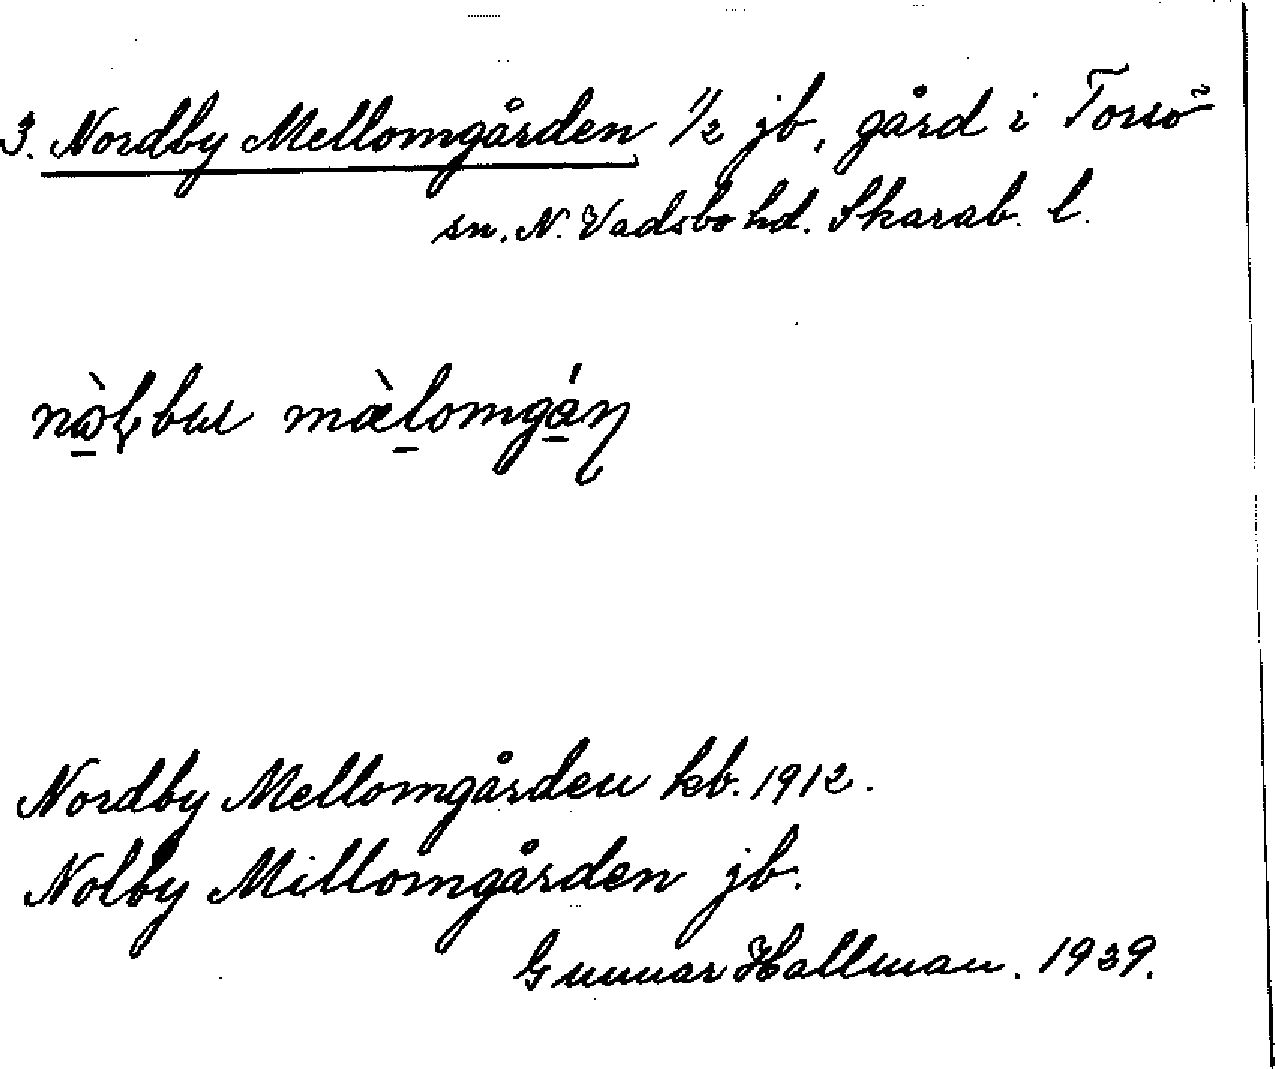 3. Nordby Mellomgården 1/2 jb, gård i Torsö
sn. N. Vadsbo hd. Skarab. l.
mæ̀lomgån
Nordby Mellomgården kb. 1912.
Nolby Millomgården jb.
Gunnar Hallman. 1939.